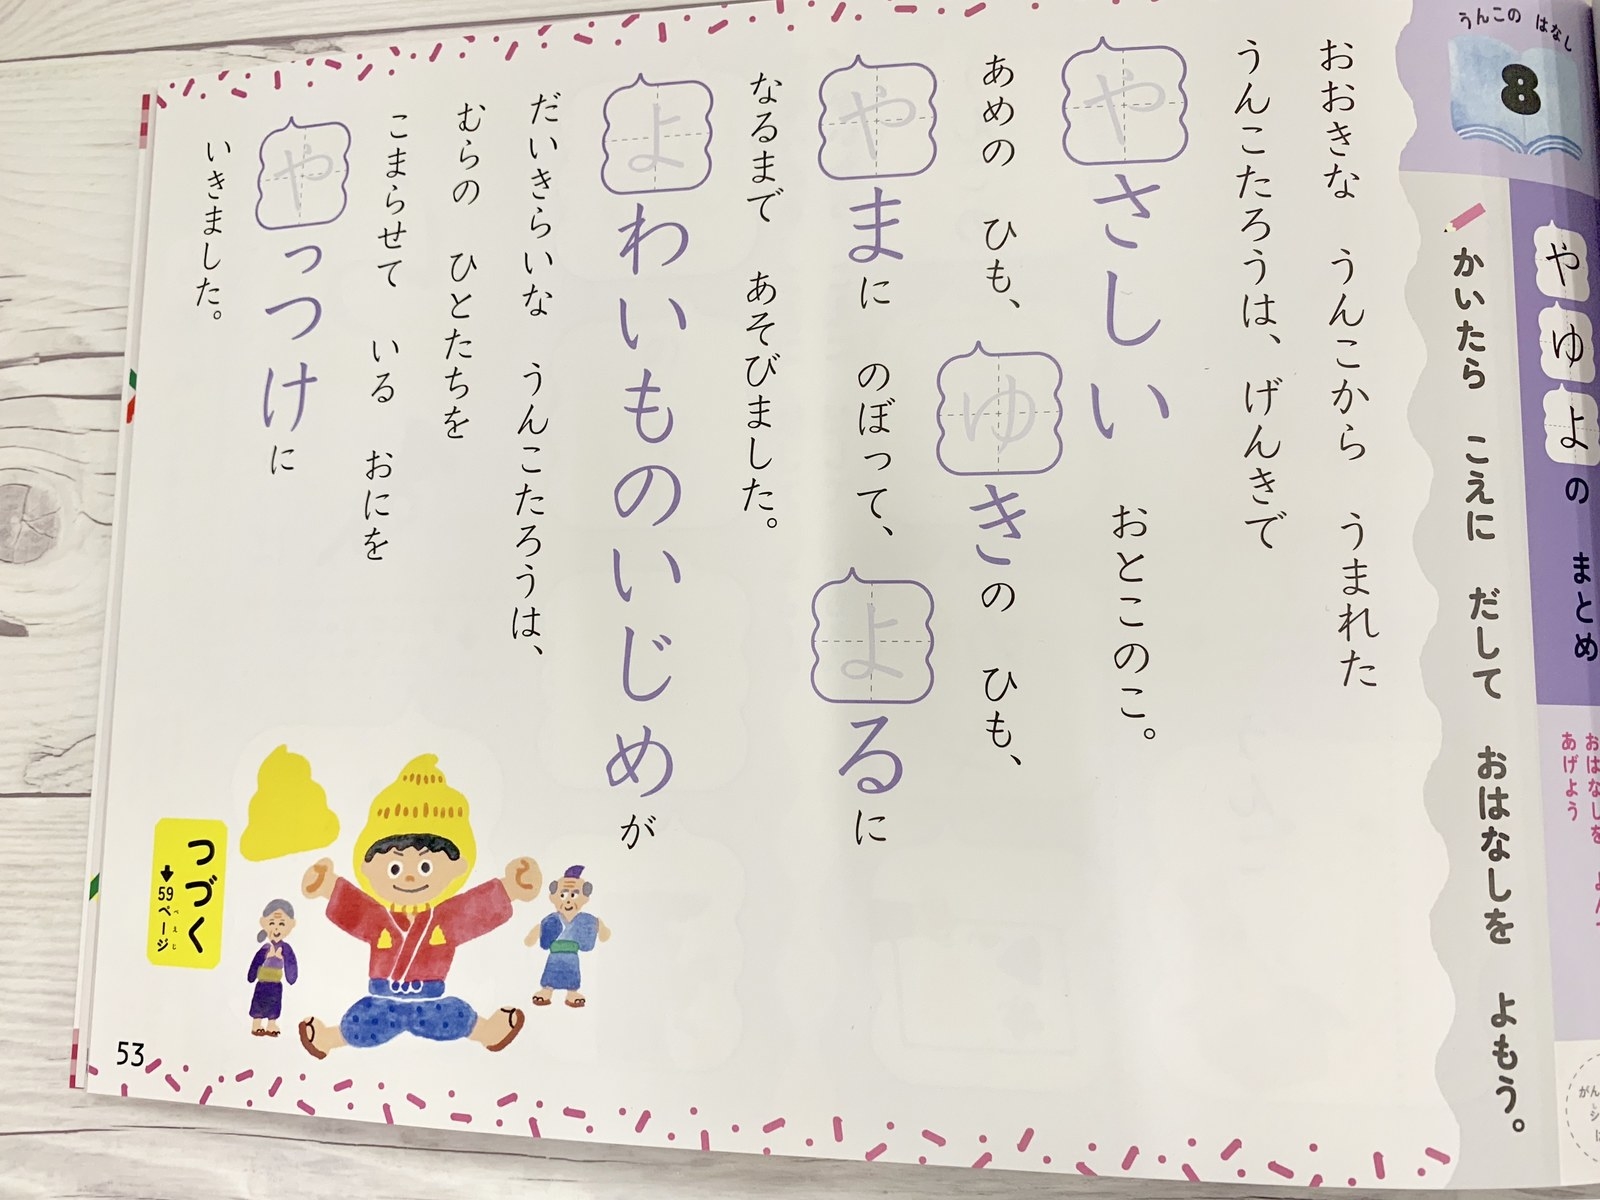 うんこの はなし
8
や ゆ よ の まとめ
おはなしを
あげよう
かいたら こえに だして おはなしを よもう。
おおきな うんこから うまれた
うんこたろうは、げんきで
やさしい おとこのこ。
あめの ひも、ゆきの ひも、
やまに のぼって、よるに
なるまで あそびました。
よわいものいじめが
だいきらいな うんこたろうは、
むらの ひとたちを
こまらせて いる おにを
やっつけに
いきました。
つづく
59ページ
ぺえじ
53